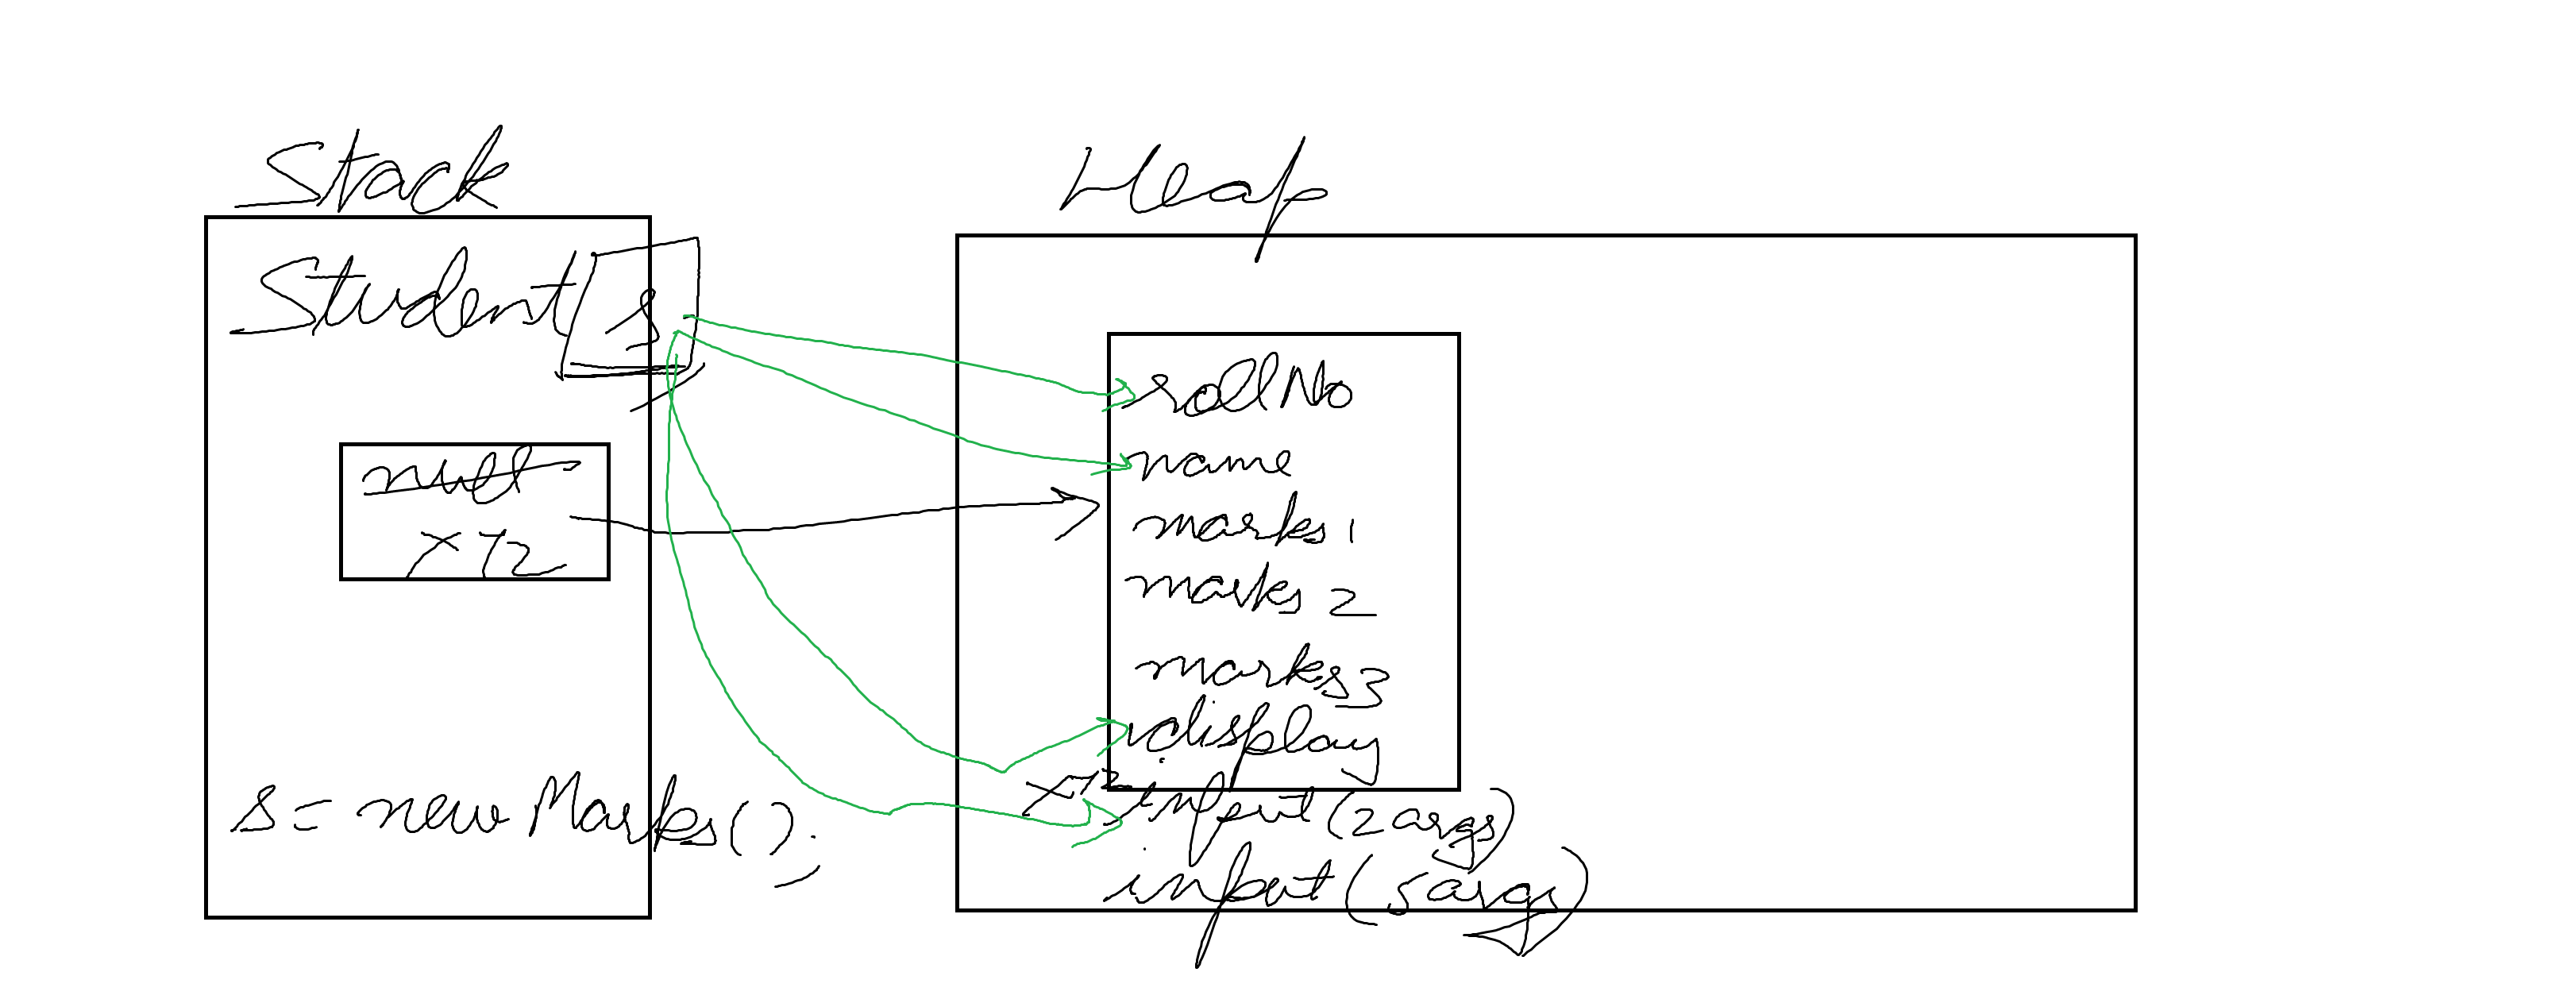 Stack
Student s
null
x72
s = new Marks();
Heap
rollNo
name
marks 1
marks 2
marks3
display
x72
input(2args)
input(5args)